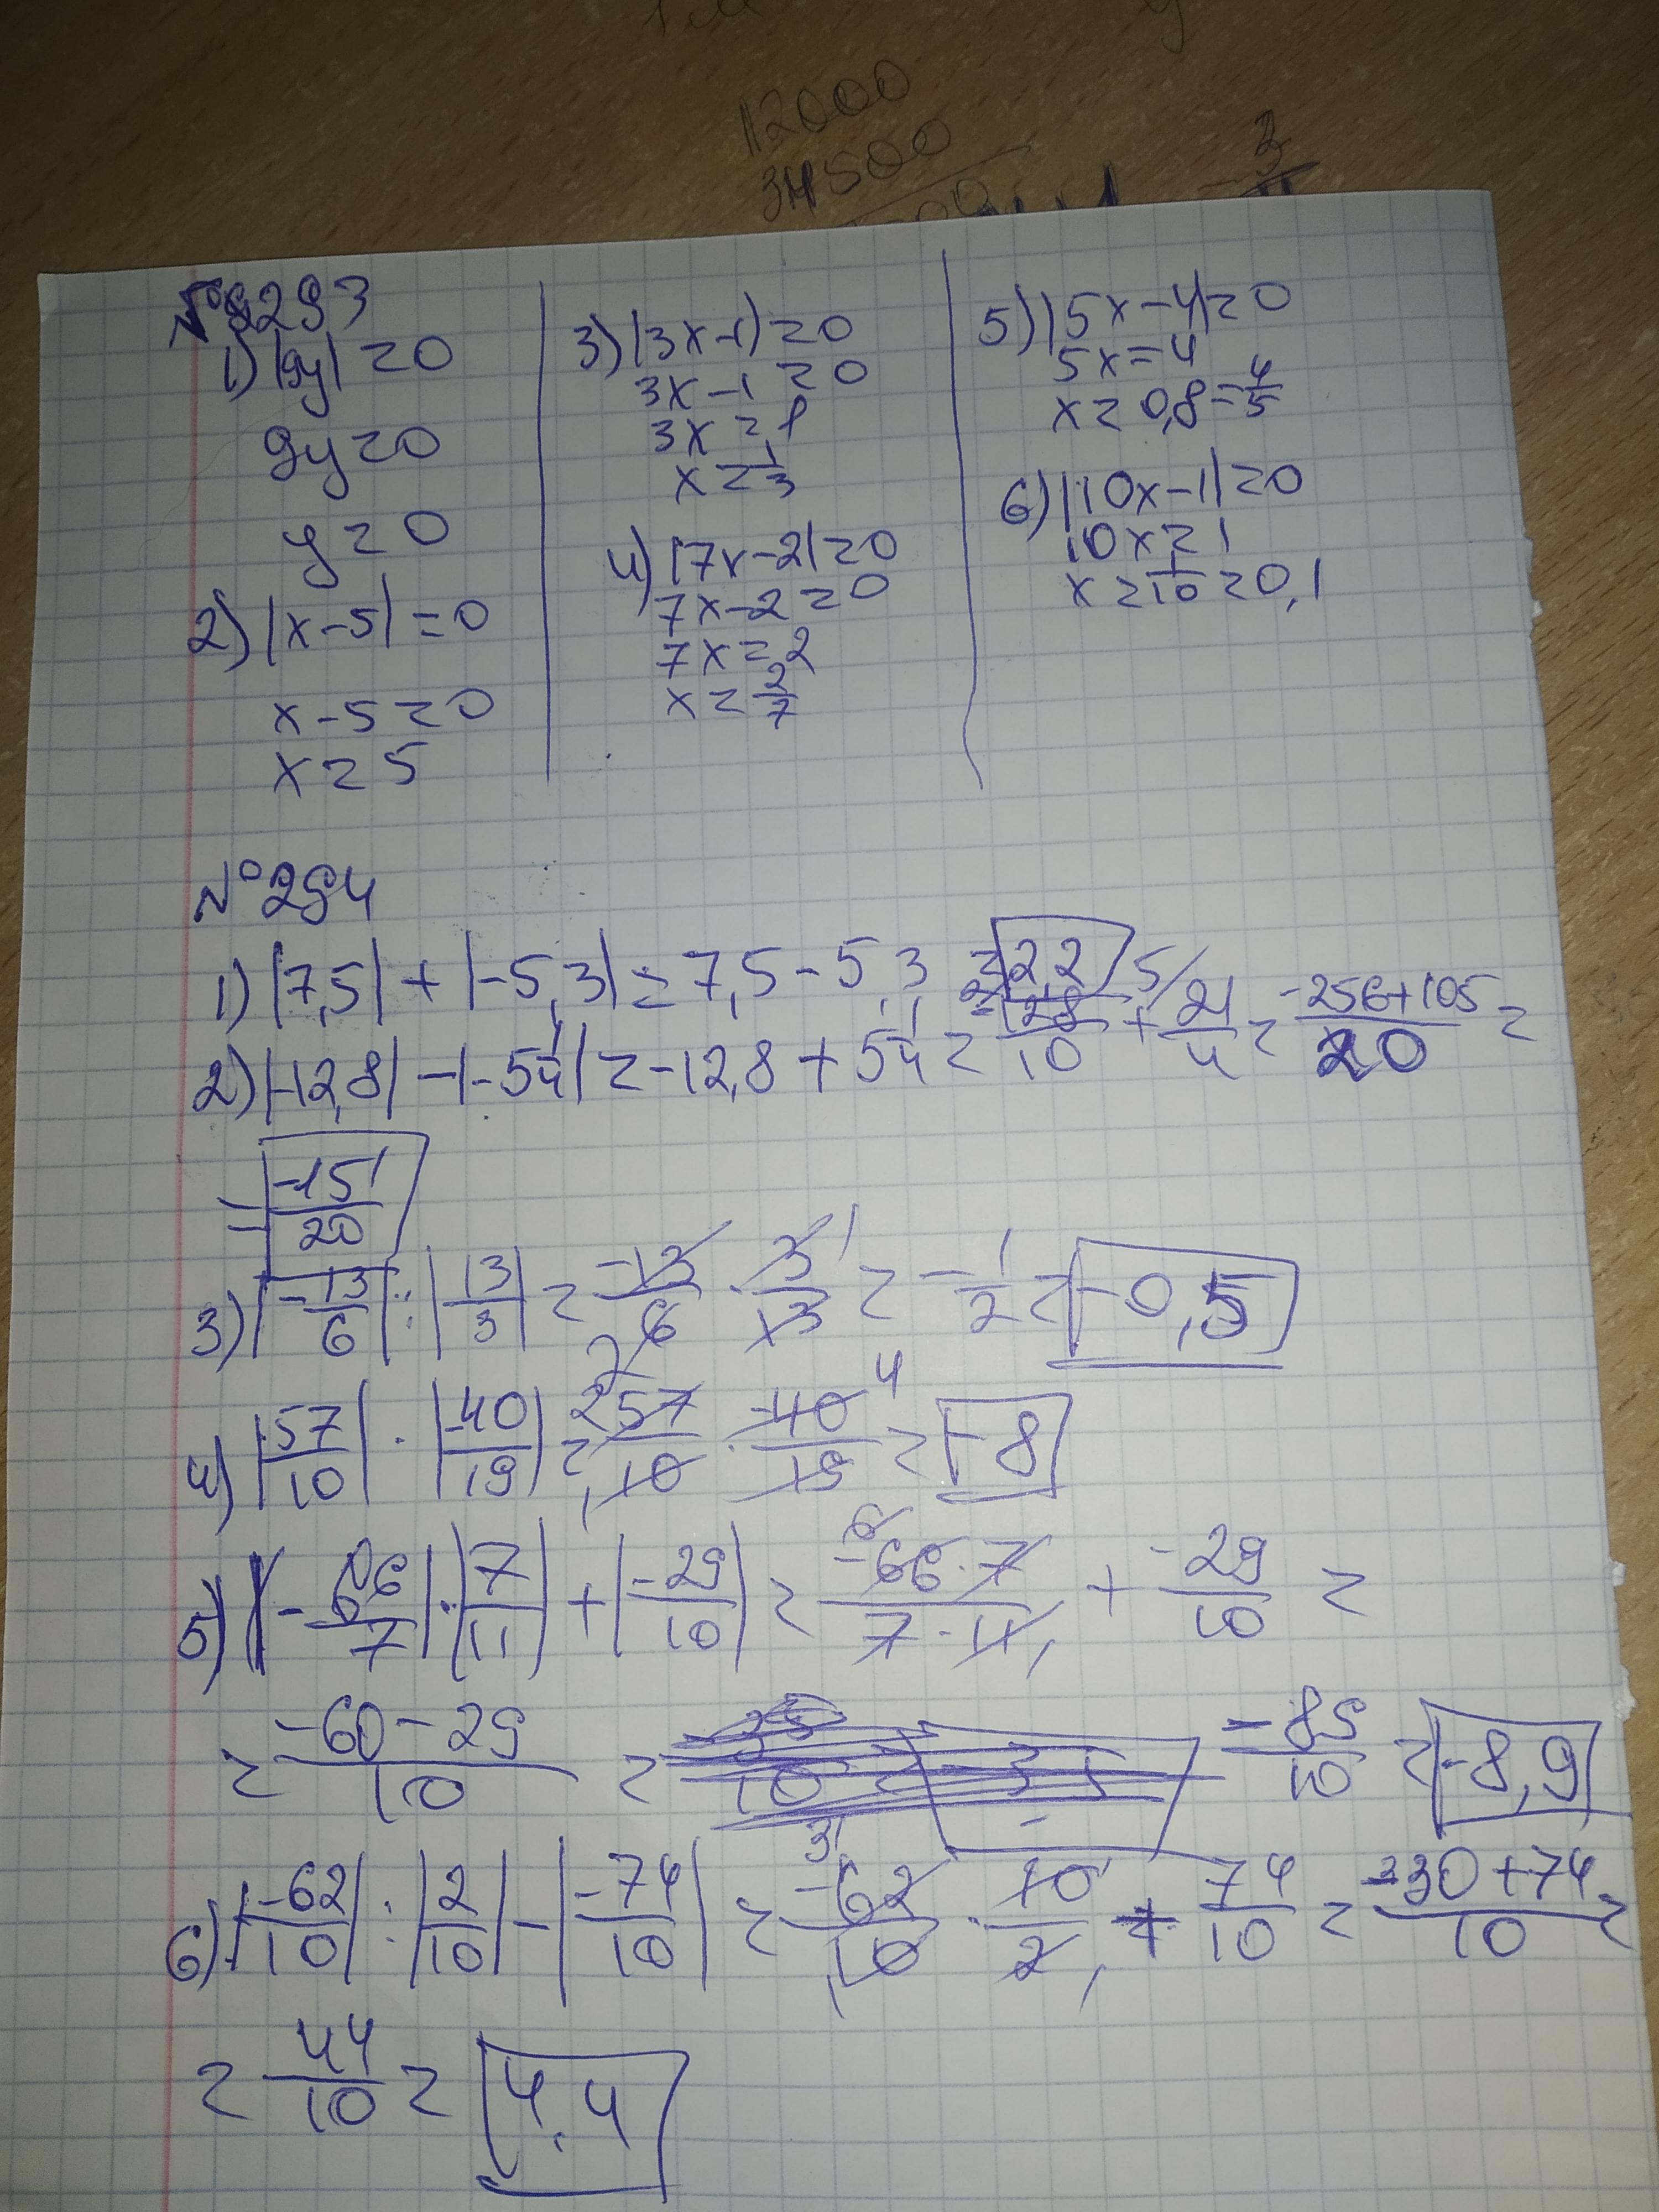 12000
34500
№293
1) |9y| = 0
9y = 0
y = 0
2) |x-5| = 0
x-5 = 0
x = 5
3) |3x-1| = 0
3x-1 = 0
3x = 1
x = 1/3
4) |7x-2| = 0
7x-2 = 0
7x = 2
x = 2/7
5) |5x-4| = 0
5x = 4
x = 0,8 = 4/5
6) |10x-1| = 0
10x = 1
x = 1/10 = 0,1
№294
1) |7,5| + |-5,3| = 7,5 - 5,3 = 2,2
2) |-12,8| - |-5 1/4| = -12,8 + 5 1/4 = -128/10 + 21/4 = (-256+105)/20 =
= -151/20
3) |-13/6| : |13/3| = -13/6 · 3/13 = -1/2 = -0,5
4) |57/10| · |-40/19| = 57/10 · -40/19 = -8
5) |-66/7| · |7/11| + |-29/10| = (-66·7)/(7·11) + -29/10 =
= (-60-29)/10 = -89/10 = -8,9
6) |-62/10| : |2/10| - |-74/10| = -62/10 · 10/2 + 74/10 = (-30+74)/10 =
= 44/10 = 4,4